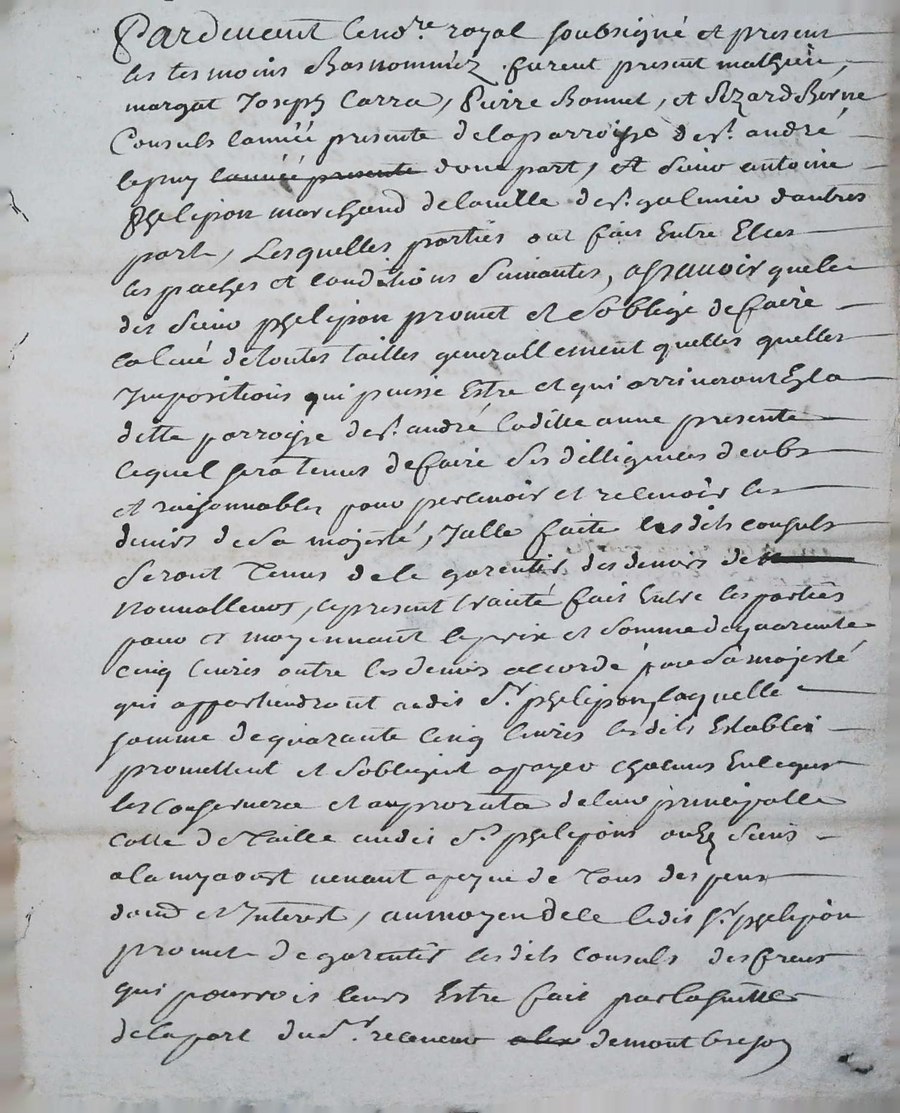 Pardevant le no.re royal soubsigné et present
les tesmoins Basnommez furent present mathieu
margat Joseph Carra, Pierre Bonnet, et Sizard Berne
Consuls lannée presente delaparroisse de s.t andré
lepuy lannée presente dune part, Et Sieur antoine
phelipon marchand delaville de s.t galmier dautres
part, Lesquelles parties ont fait Entre Elles
les paches et Conditions Suivantes, assavoir quele
dit Sieur phelipon promet et Soblige defaire
la levé detoutes tailles generallement quelles quelles
Impositions qui puisse Estre et qui arriveront Ezla
ditte parroisse de s.t andré laditte anne presente
lequel sera tenus defaire ses dilligences deubs
et raisonnables pour percevoir et recevoir les
deniers de Sa majesté, Jalle faite lesdits consuls
Seront Tenus dele garentir des deniers de
nonvalleurs, lepresent traité fait Entre lesparties
pour et moyennant leprix et Somme dequarente
cinq livres outre lesdeniers accordé par Sa majesté
qui appartiendront audit S.r phelipon, laquelle
somme dequarante cinq livres lesdits Establis
promettent et Sobligent apayer chacuns Enlequi
les Consernera et auprorata deleur principalle
cotte de Taille audit S.r phelipon ou Ez Siens
ala myaoust venant apeyne de Tous despens
et Interest, aumoyen dece ledit S.r phelipon
promet de garentir lesdits Consuls desfreus
qui pourrois leurs Estre fait parlasuitte
delapart du S.r receveur demontbrison